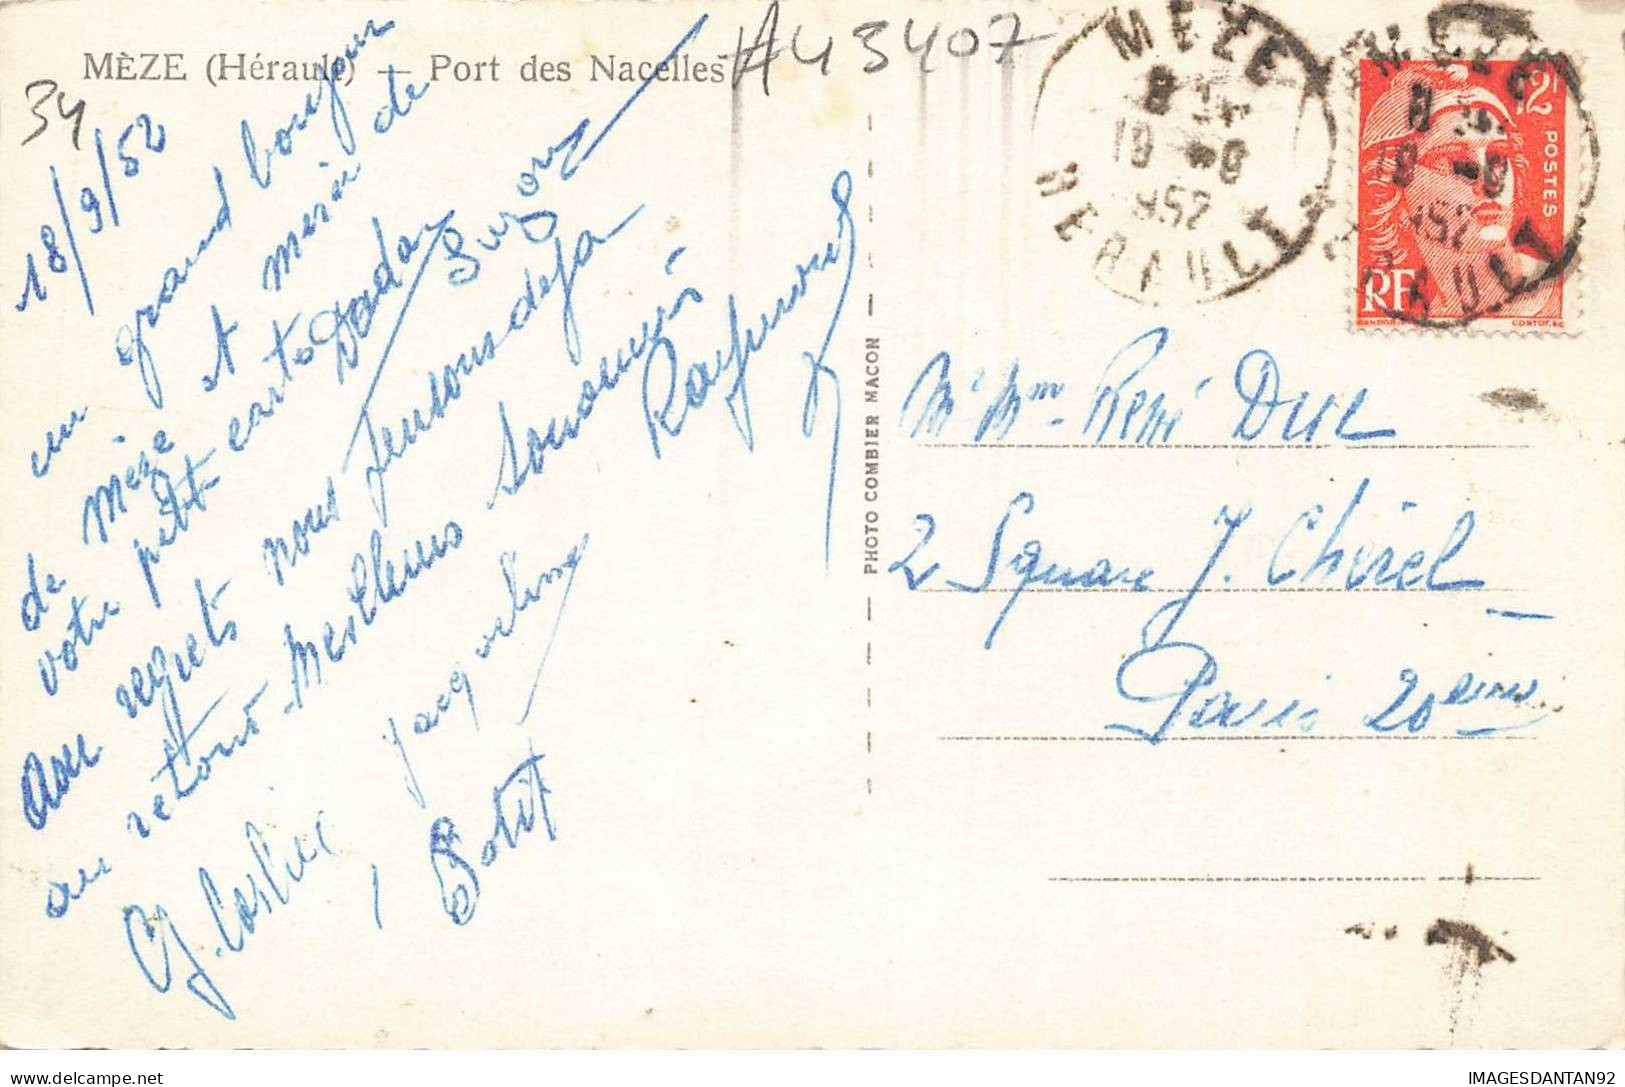 MÈZE (Hérault) — Port des Nacelles
A43407
34
18/9/52
un grand bonjour
de Mèze et merci de
votre petite carte Dadar
Suzon
Avec regrets nous pensons déjà
au retour. Meilleurs souvenirs
Raymond
Jacqueline
Potet
PHOTO COMBIER MACON
MEZE
18 -9
1952
HERAULT
12F
POSTES
RF
GANDON
CORTOT, SC
Mr Mme René DUC
2 Square J. Chérel
Paris 20ème
IMAGESDANTAN92